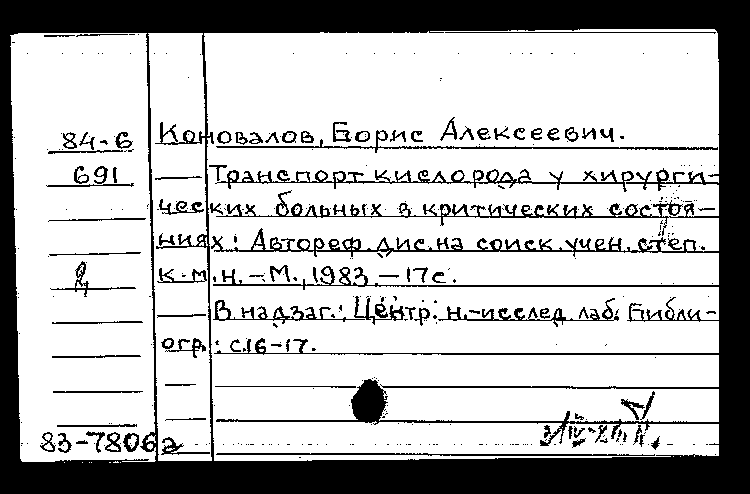 84-6 Коновалов, Борис Алексеевич.
691 Транспорт кислорода у хирурги-
ческих больных в критических состоя-
ниях: Автореф. дис. на соиск. учен. степ.
к.м.н. - М., 1983. - 17 с.
В надзаг.: Центр. н.-исслед. лаб. Библи-
огр.: с. 16-17.
83-7806а